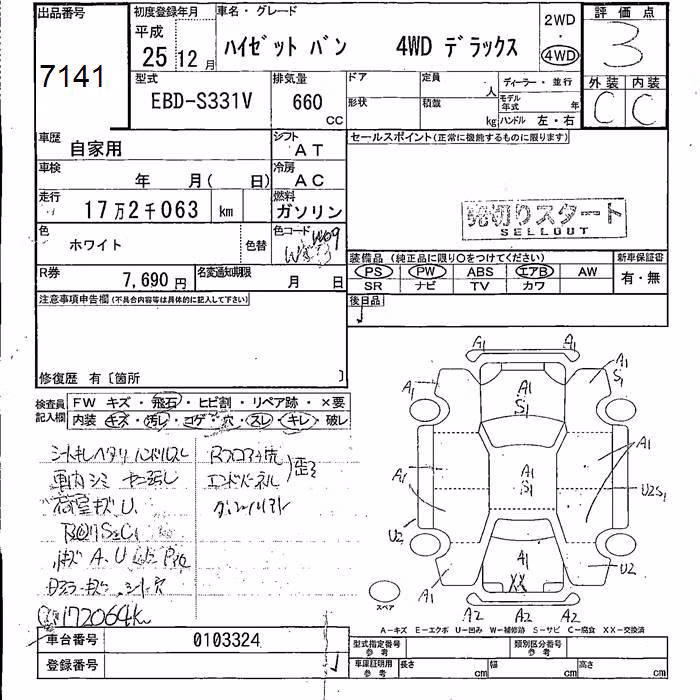 出品番号
7141
初度登録年月
平成
25年12月
車名・グレード
ハイゼット バン 4WD デラックス
2WD
・
4WD
評価点
3
型式
EBD-S331V
排気量
660
CC
ドア
定員
人
形状
積載
kg
ディーラー・並行
モデル年式 年
ハンドル 左・右
外装 内装
C C
車歴
自家用
シフト
AT
車検
年 月( 日)
冷房
AC
走行
17万2千063 km
燃料
ガソリン
色
ホワイト
色替
色コード
W09
R券
7,690円
名変通知期限
月 日
セールスポイント(正常に機能するものに限ります)
売切りスタート
SELLOUT
装備品(純正品に限り○をつけてください)
新車保証書
PS PW ABS エアB AW
有・無
SR ナビ TV カワ
後日品
注意事項申告欄(不具合内容等は具体的に記入して下さい)
修復歴 有〔箇所 〕
検査員記入欄
FW キズ・飛石・ヒビ割・リペア跡・×要
内装・キズ・汚レ・コゲ・穴・スレ・キレ・破レ
シートキレ ヘタリ ハンドルスレ
車内シミ
荷室キズ U
S2C1
キズ A、U
シート穴
172064K
Rフロア
エンドパネル
歪
A1 A1
A1 A1 S1
A1 S1
A1 A1 S1 A1
U2S1
U2
A1 XX U2
A1
A2 A2 A2
スペア
A-キズ E-エクボ U-凹み W-補修跡 S-サビ C-腐食 XX-交換済
車台番号
0103324
登録番号
型式指定番号 参考
類別区分番号 参考
車庫証明用 参考
長さ cm
幅 cm
高さ cm